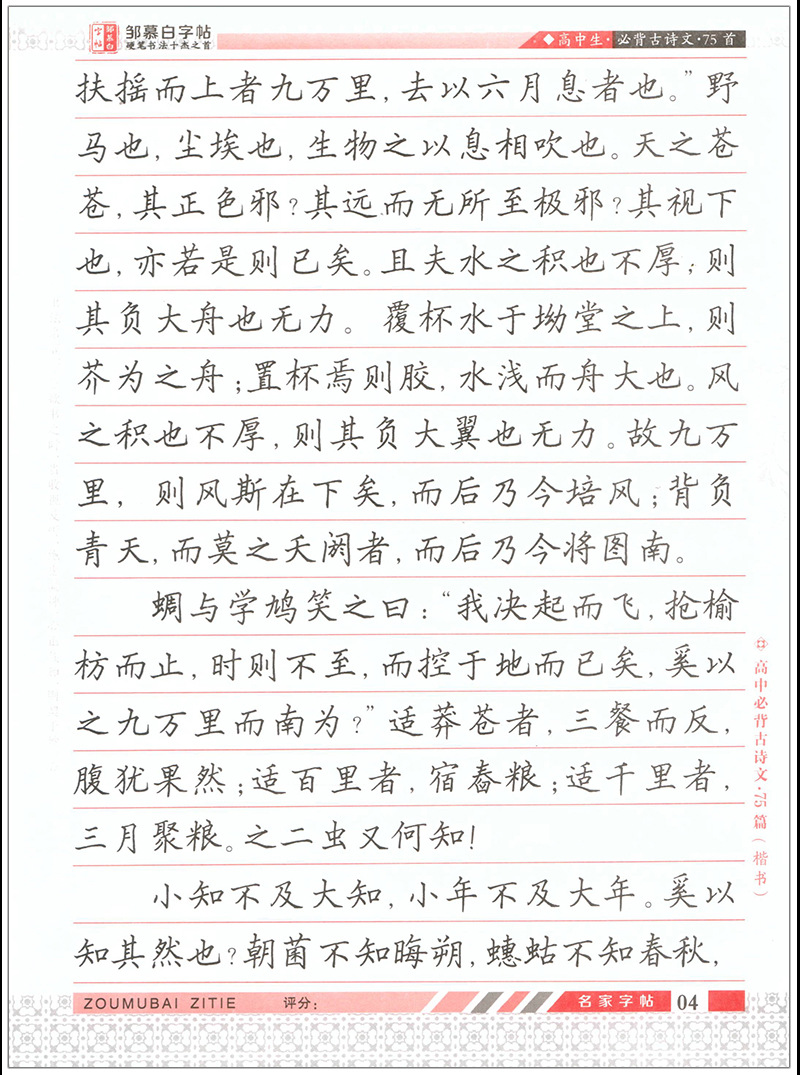 邹慕白字帖
邹慕白
字帖
硬笔书法十杰之首
◆高中生·必背古诗文·75首
扶摇而上者九万里，去以六月息者也。”野
马也，尘埃也，生物之以息相吹也。天之苍
苍，其正色邪？其远而无所至极邪？其视下
也，亦若是则已矣。且夫水之积也不厚；则
其负大舟也无力。覆杯水于坳堂之上，则
芥为之舟；置杯焉则胶，水浅而舟大也。风
之积也不厚，则其负大翼也无力。故九万
里，则风斯在下矣，而后乃今培风；背负
青天，而莫之夭阏者，而后乃今将图南。
蜩与学鸠笑之曰：“我决起而飞，抢榆
枋而止，时则不至，而控于地而已矣，奚以
之九万里而南为？”适莽苍者，三餐而反，
腹犹果然；适百里者，宿舂粮；适千里者，
三月聚粮。之二虫又何知！
小知不及大知，小年不及大年。奚以
知其然也？朝菌不知晦朔，蟪蛄不知春秋，
高中必背古诗文·75篇（楷书）
ZOUMUBAI ZITIE
评分：
名家字帖
04